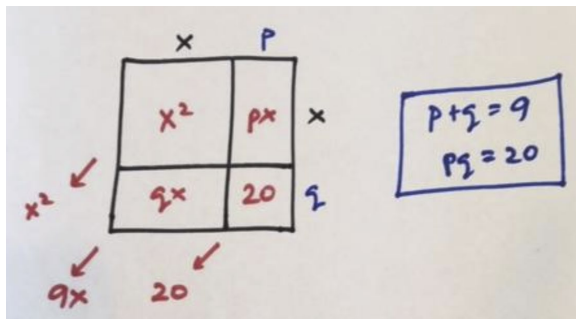 x p
x² px x
qx 20 q
x²
9x 20
p+q=9
pq=20